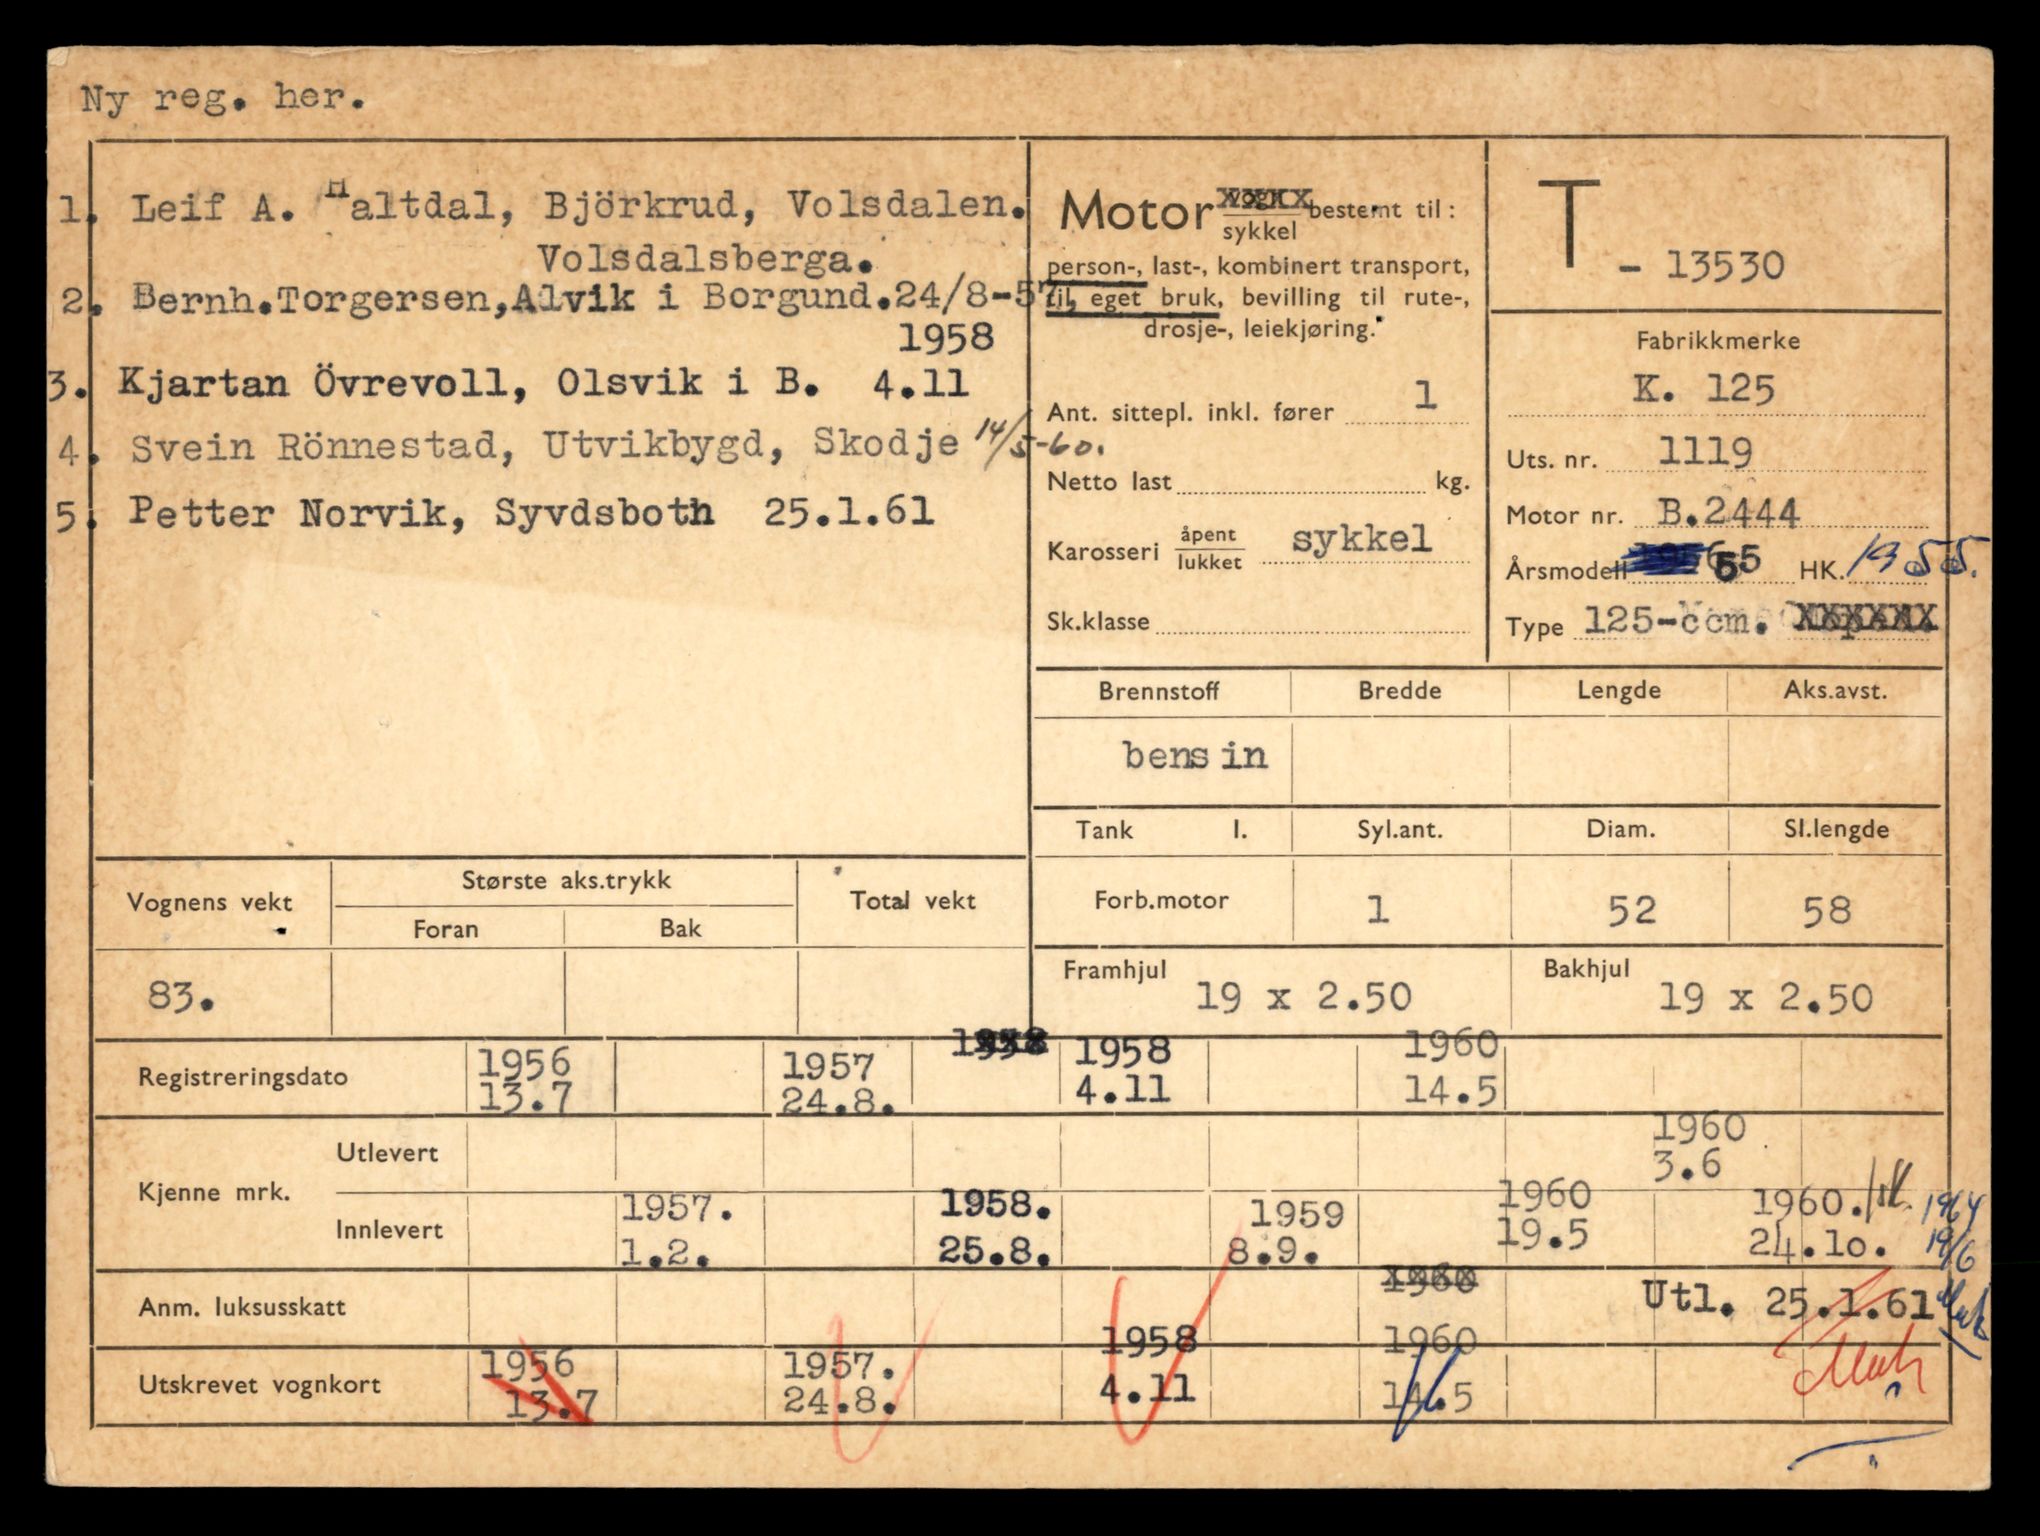 Ny reg. her.
1. Leif A. Haltdal, Björkrud, Volsdalen.
Volsdalsberga.
2. Bernh.Torgersen,Alvik i Borgund.24/8-57.
1958
3. Kjartan Övrevoll, Olsvik i B. 4.11
4. Svein Rönnestad, Utvikbygd, Skodje 14/5-60.
5. Petter Norvik, Syvdsboth 25.1.61
Motor vogn sykkel bestemt til:
person-, last-, kombinert transport,
til eget bruk, bevilling til rute-,
drosje-, leiekjøring.
Ant. sittepl. inkl. fører 1
Netto last kg.
Karosseri åpent lukket sykkel
Sk.klasse
T - 13530
Fabrikkmerke
K. 125
Uts. nr. 1119
Motor nr. B.2444
Årsmodell 55 HK. 1955.
Type 125-ccm.
Brennstoff Bredde Lengde Aks.avst.
bensin
Tank l. Syl.ant. Diam. Sl.lengde
Forb.motor 1 52 58
Framhjul 19 x 2.50 Bakhjul 19 x 2.50
Vognens vekt Største aks.trykk Total vekt
Foran Bak
83.
Registreringsdato 1956 1957 1958 1958 1960
13.7 24.8. 4.11 14.5
Kjenne mrk. Utlevert 1960
3.6
Innlevert 1957. 1958. 1959 1960 1960. 1964
1.2. 25.8. 8.9. 19.5 24.10. 19/6
Anm. luksusskatt 1960 Utl. 25.1.61
Utskrevet vognkort 1956 1957. 1958 1960
13.7 24.8. 4.11 14.5